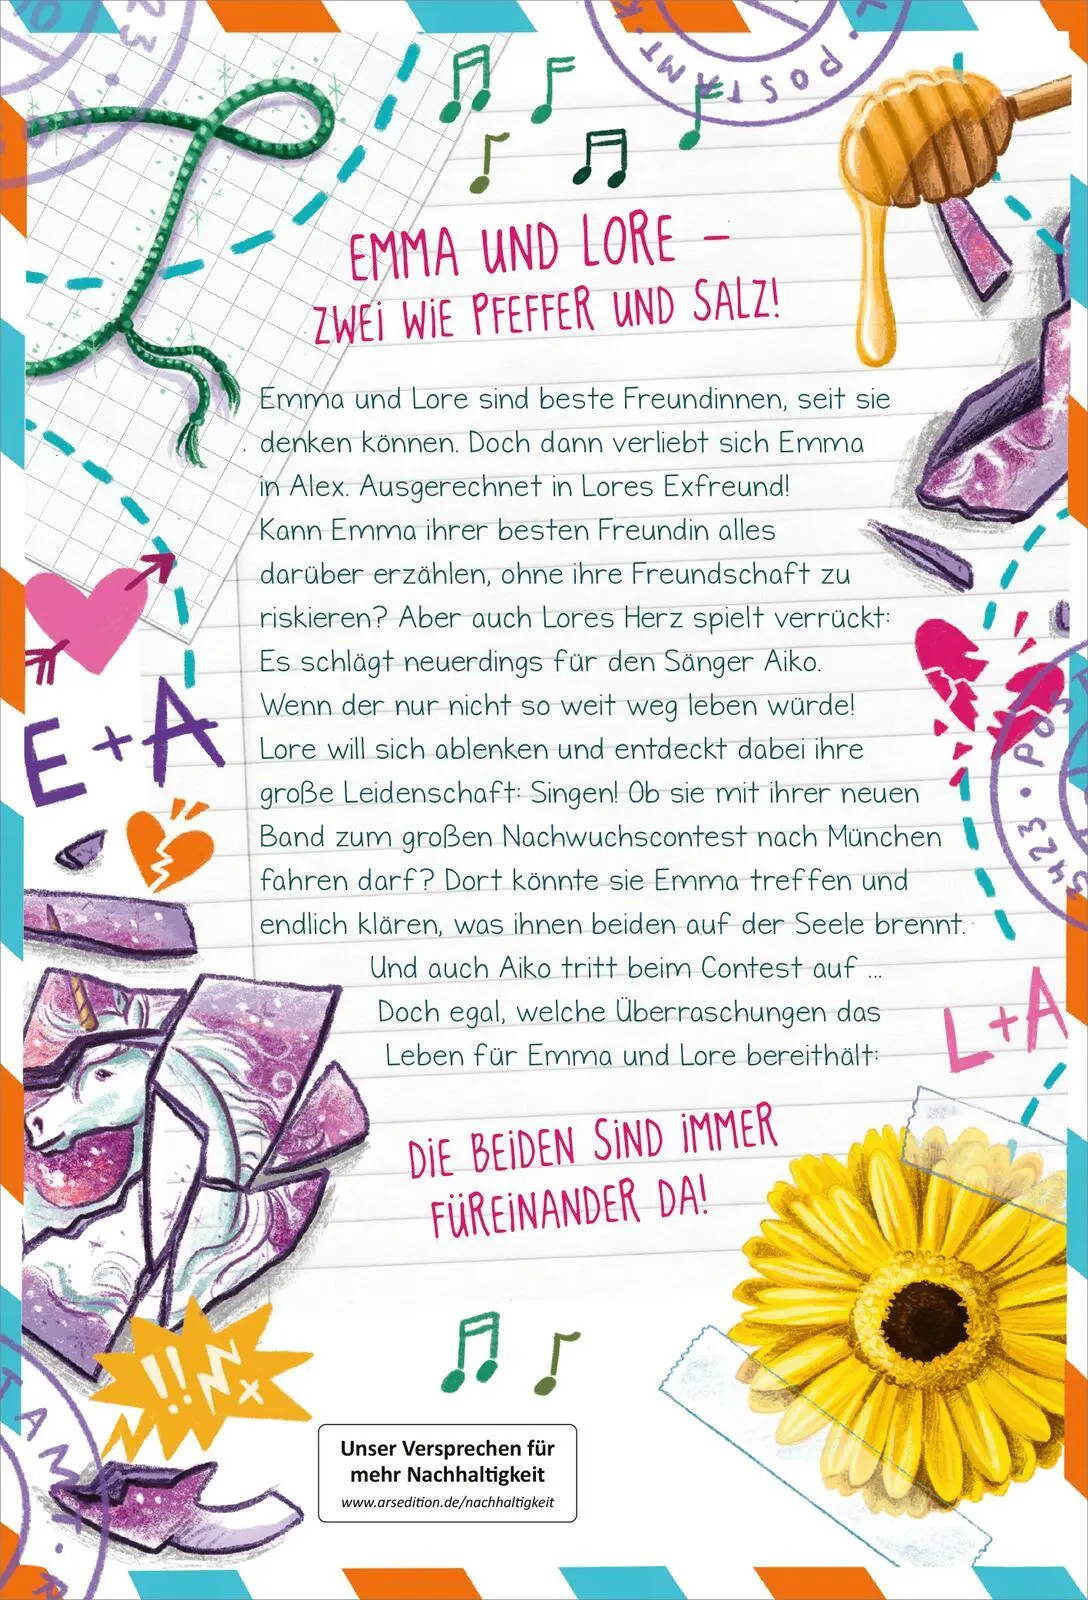 POSTAMT · K
EMMA UND LORE –
ZWEI WIE PFEFFER UND SALZ!
Emma und Lore sind beste Freundinnen, seit sie
denken können. Doch dann verliebt sich Emma
in Alex. Ausgerechnet in Lores Exfreund!
Kann Emma ihrer besten Freundin alles
darüber erzählen, ohne ihre Freundschaft zu
riskieren? Aber auch Lores Herz spielt verrückt:
Es schlägt neuerdings für den Sänger Aiko.
Wenn der nur nicht so weit weg leben würde!
Lore will sich ablenken und entdeckt dabei ihre
große Leidenschaft: Singen! Ob sie mit ihrer neuen
Band zum großen Nachwuchscontest nach München
fahren darf? Dort könnte sie Emma treffen und
endlich klären, was ihnen beiden auf der Seele brennt.
Und auch Aiko tritt beim Contest auf ...
Doch egal, welche Überraschungen das
Leben für Emma und Lore bereithält:
DIE BEIDEN SIND IMMER
FÜREINANDER DA!
E+A
3423 · POST
L+A
!!
Unser Versprechen für
mehr Nachhaltigkeit
www.arsedition.de/nachhaltigkeit